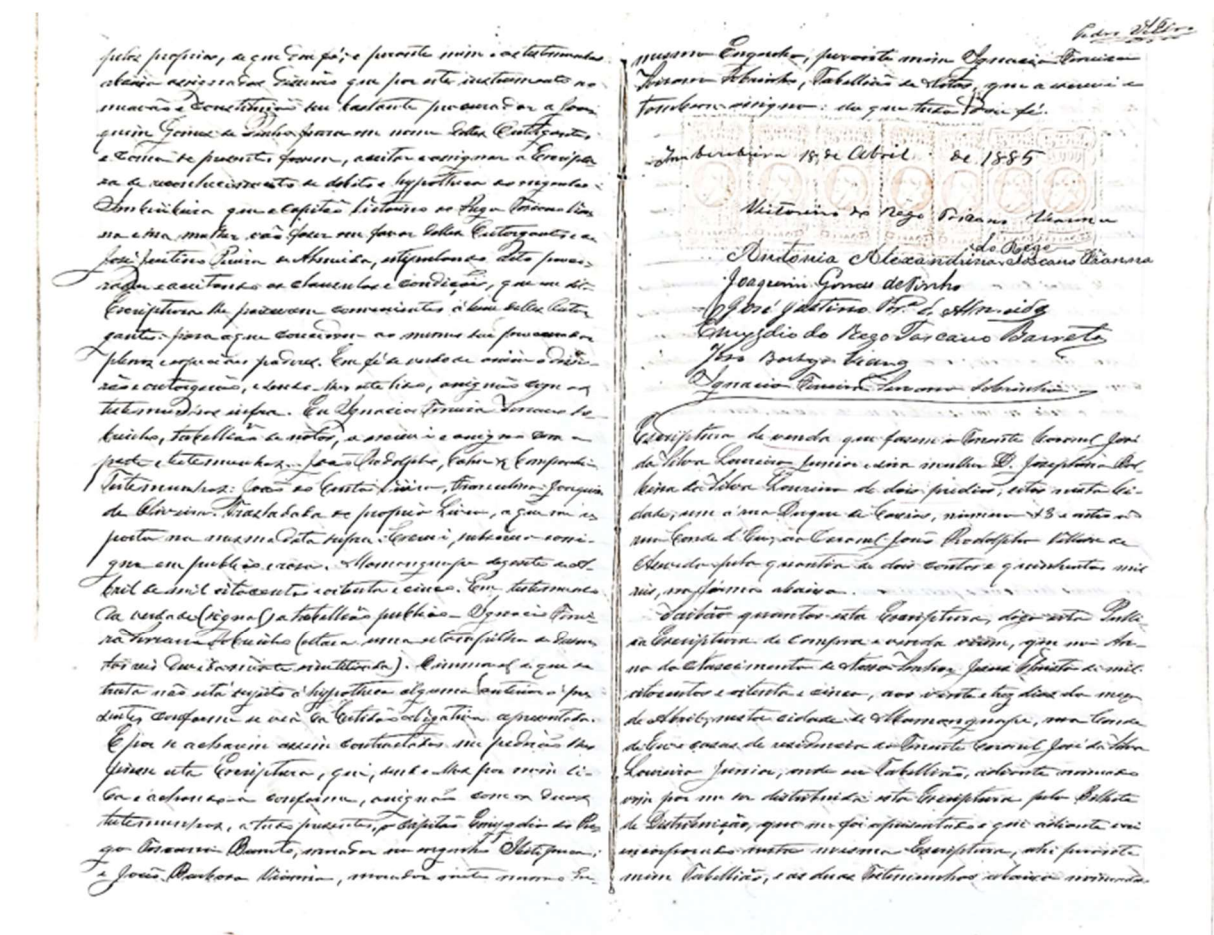 pelos proprios, de que dou fé; e perante mim e as testemunhas
abaixo assignadas disserão que por este instrumento no-
meavão e constituião seu bastante procurador a Joa-
quim Gomes de Pinho para em nome delles Outorgantes
e como se presentes fossem, aceitar e assignar a Escriptu-
ra de reconhecimento de debito e hypotheca do engenho
que o Capitão Victorino do Rego Toscano Vian-
na e sua mulher, vão fazer em favor delles Outorgantes e de
José Justino Pereira de Almeida, estipulando dito procu-
rador e aceitando as clausulas e condições, que em dita
Escriptura lhe parecerem convenientes á bem delles Outor-
gantes: para o que concedem ao mesmo seu procurador
plenos e especiaes poderes. Em fé de verdade assim o disse-
rão e outorgarão, e sendo-lhes este lido, assignão com as
testemunhas infra. Eu Ignacio Ferreira Serrano So-
brinho, tabellião de notas, o escrevi e assigno com a
parte e testemunhas. João Rodolpho,
Testemunhas: João da Costa
de Oliveira. Trasladada do proprio Livro, a que me re-
porto na mesma data supra: Escrevi, subscrevo e assi-
gno em publico e raso. Mamanguape de A-
bril de mil oitocentos e oitenta e cinco. Em testemunho
da verdade (signal) o tabellião publico Ignacio Ferrei-
ra Serrano Sobrinho (estava uma estampilha de duzen-
tos reis devidamente inutilizada). O immovel de que se
trata não está sujeito á hypotheca alguma anterior á pre-
sente, conforme se vê da Certidão negativa apresentada.
E por se acharem assim contractados me pedirão lhes
fizesse esta Escriptura, que, sendo-lhes por mim li-
da e achando-a conforme, assignão com as duas
testemunhas, a tudo presentes, o Capitão Emygdio do Re-
go Toscano Barreto, morador no engenho
e João Barbosa Vianna, morador neste mesmo En-
mesmo Engenho, perante mim Ignacio Ferreira
Serrano Sobrinho, Tabellião de Notas, que a escrevi e
tambem assigno: do que tudo dou fé.
18 de Abril de 1885
Victorino do Rego Toscano Vianna
do Rego
Antonia Alexandrina Toscano Vianna
Joaquim Gomes de Pinho
José Justino Pra. de Almeida
Emygdio do Rego Toscano Barreto
Ignacio Ferreira Serrano Sobrinho
Escriptura de venda que fazem o Tenente Coronel José
da Silva Loureiro Junior e sua mulher D. Josephina
da Silva Loureiro de dois predios, sitos nesta Ci-
dade, um á rua Duque de Caxias, numero e outro á
rua Conde d'Eu, ao Coronel João Rodolpho de
Azevedo pela quantia de dois contos e quinhentos mil
reis, na fórma abaixo.
Saibão quantos esta Escriptura, digo esta Publi-
ca Escriptura de compra e venda virem, que no An-
no do Nascimento de Nosso Senhor Jesus Christo de mil
oitocentos e oitenta e cinco, aos vinte e dias do mez
de Abril, nesta cidade de Mamanguape, rua Conde
d'Eu e casas de residencia do Tenente Coronel José da Silva
Loureiro Junior, onde eu Tabellião, adiante nomeado
vim por me ser distribuida esta Escriptura pelo Bilhete
de Distribuição, que me foi apresentado e que adiante vai
incorporado nesta mesma Escriptura, ahi perante
mim Tabellião, e as duas testemunhas abaixo nomeadas